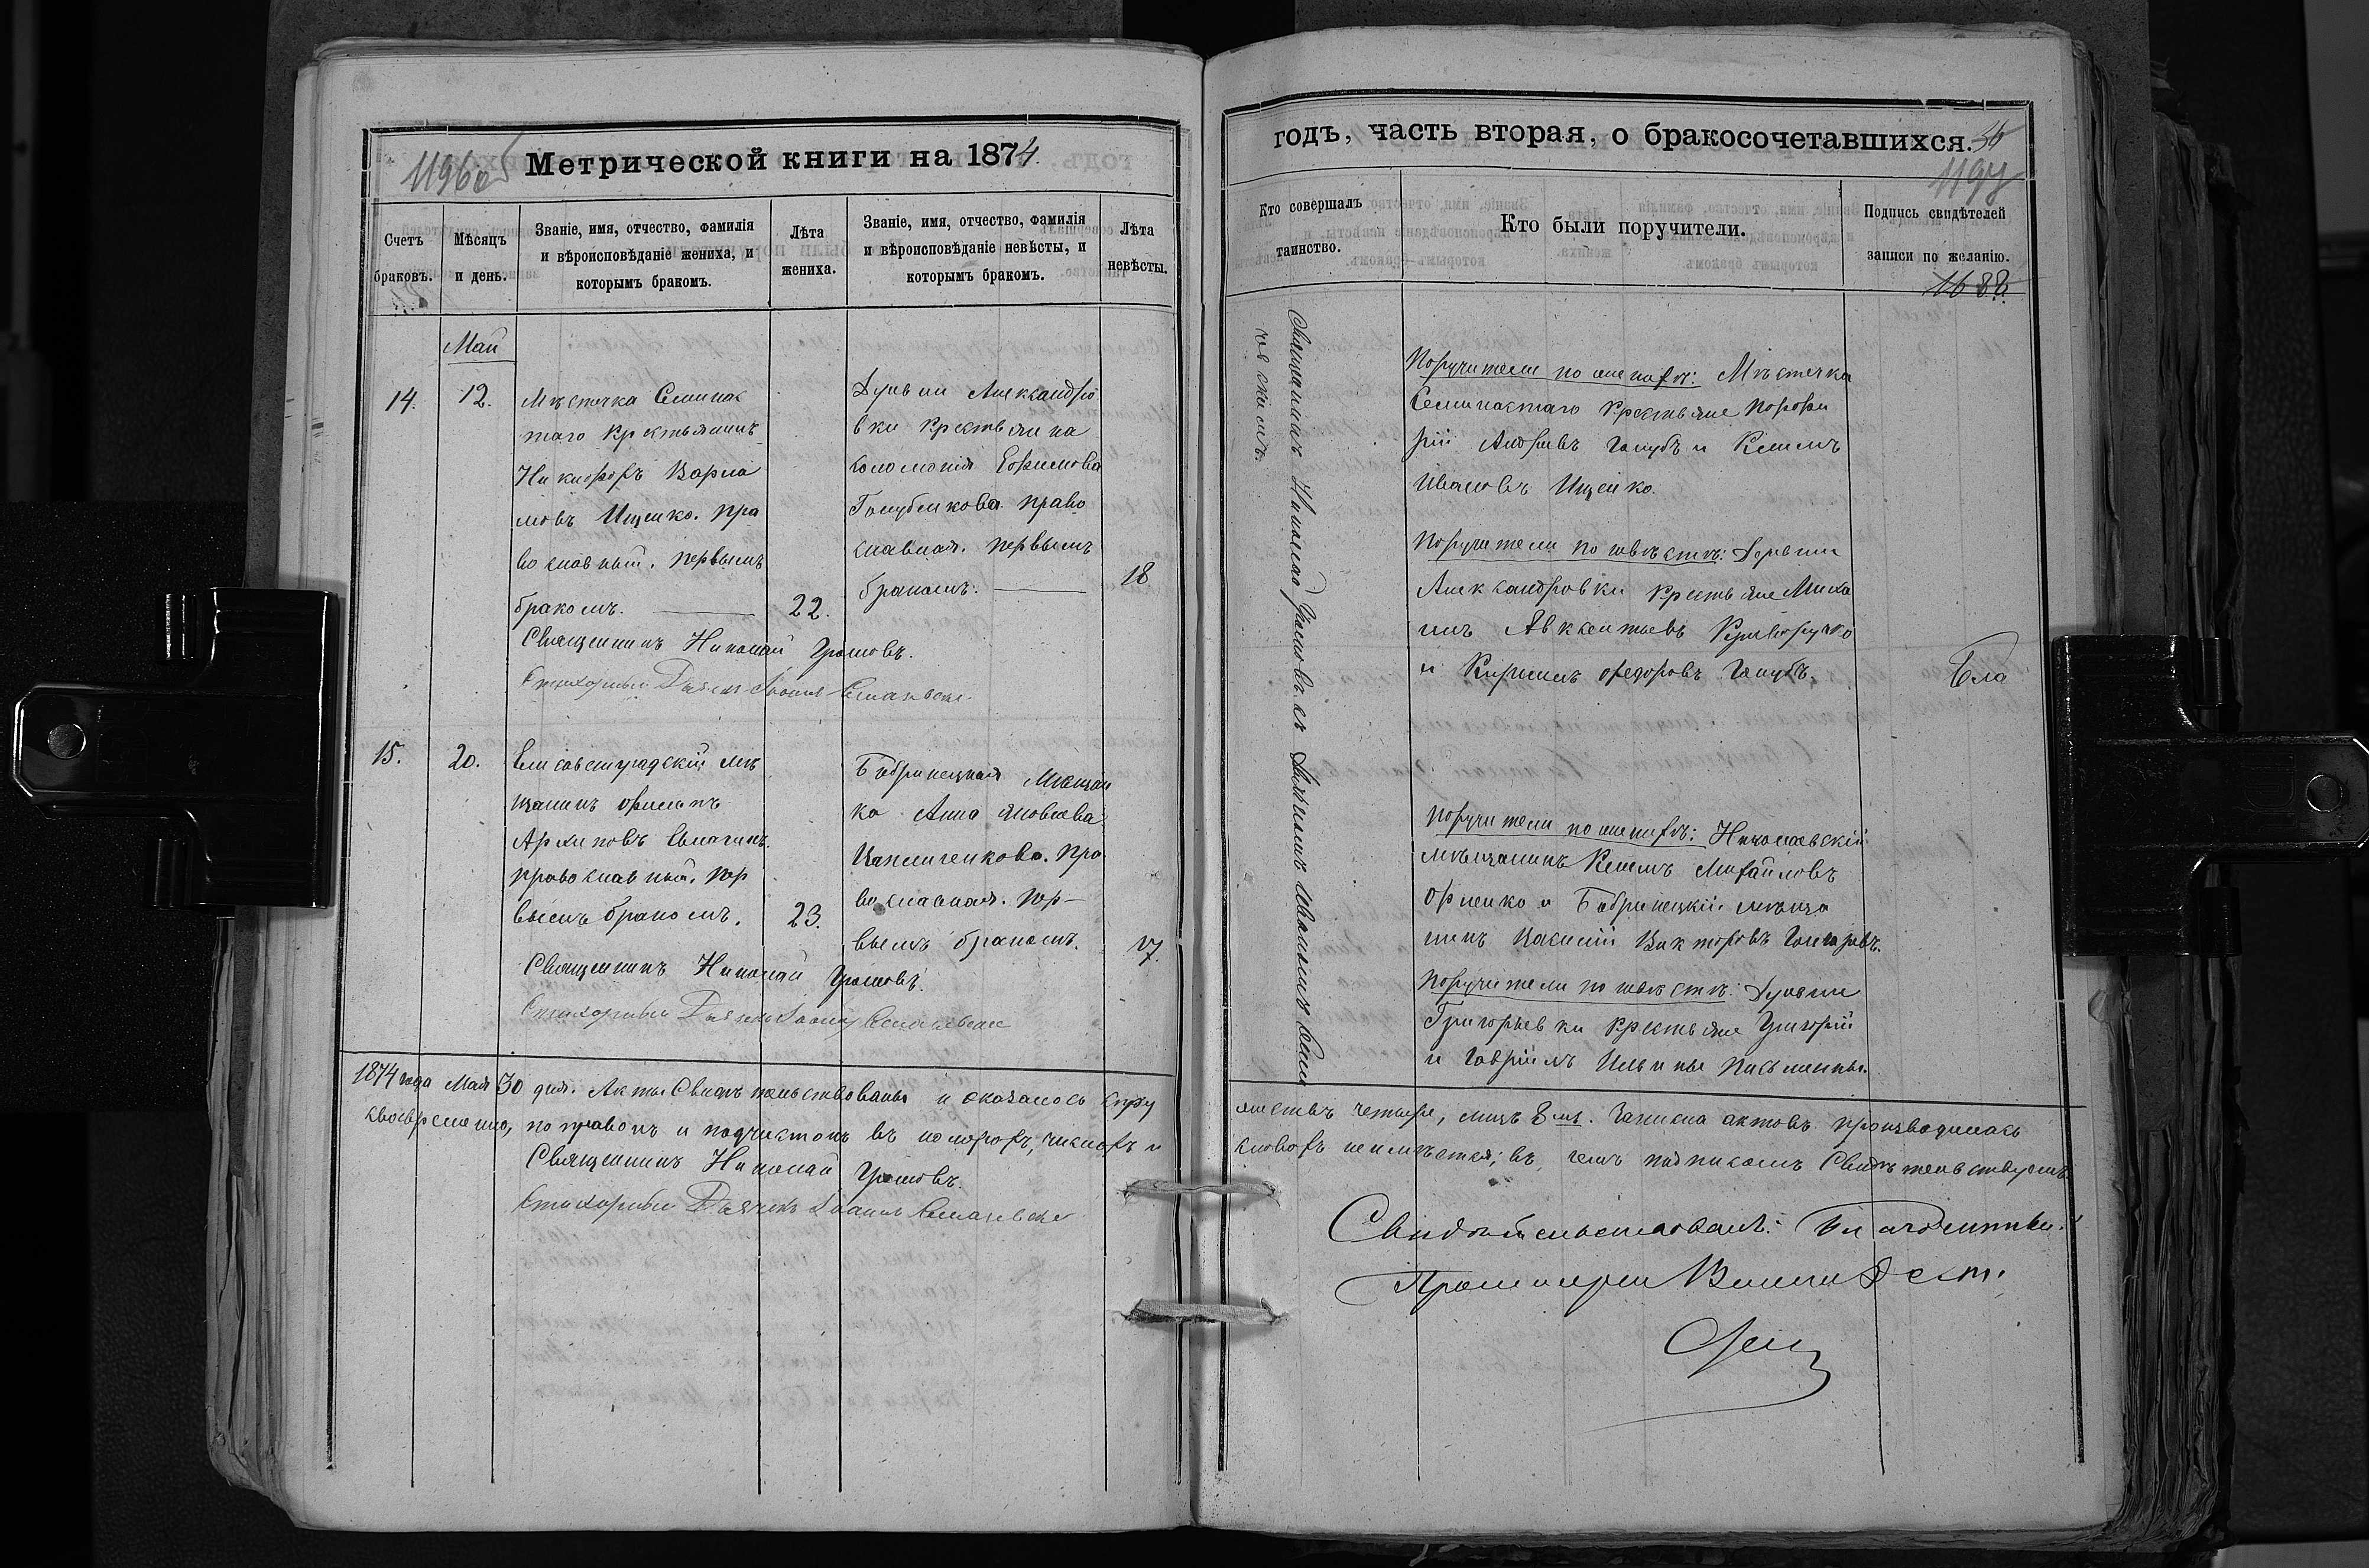 Метрической книги на 1874.
Счетъ браковъ.
Мѣсяцъ и день.
Званіе, имя, отчество, фамилія
и вѣроисповѣданіе жениха, и
которымъ бракомъ.
Лѣта
жениха.
Званіе, имя, отчество, фамилія
и вѣроисповѣданіе невѣсты, и
которымъ бракомъ.
Лѣта
невѣсты.
Май
14.
12.
Мѣстечка Семинас
таго Крестьянинъ
Никифоръ Варла
мовъ Ищенко. пра
вославный. первымъ
бракомъ.
22.
Деревни Александро
вки Крестьянка
Соломонія Ефимова
Голубенкова. право
славная. первымъ
бракомъ.
18
Священникъ Николай Громовъ.
Стихарный Дьячекъ Іоаннъ
15.
20.
Елисаветградскій мѣ
щанинъ Филипъ
Архиповъ
православный. пер
вымъ бракомъ.
23.
Бобринецкая мѣщан
ка Анна Яковлева
пра
вославная. пер-
вымъ бракомъ.
17.
Священникъ Николай Громовъ.
Стихарный Дьячекъ Іоаннъ
1874 года Мая 30 дня. Акты Свидѣтельствованы и оказалось супру
своевременно, поправокъ и подчистокъ въ которыхъ, числахъ и
Священникъ Николай Громовъ.
Стихарный Дьячекъ Іоаннъ
годъ, часть вторая, о бракосочетавшихся.
1197
Кто совершалъ
таинство.
Кто были поручители.
Подпись свидѣтелей
записи по желанію.
Священникъ Николай Громовъ съ Дьячкомъ Иваномъ Семи
чевскимъ.
Поручители по женихѣ: Мѣстечка
Семинастаго Крестьяне Порфи
рій Андреевъ Голубъ и Климъ
Ивановъ Ищенко.
Поручители по невѣстѣ: Деревни
Александровки Крестьяне Миха
илъ Авксентьевъ Криворучко
и Кирилъ Федоровъ Голубъ.
Бла
Поручители по женихѣ: Николаевскій
мѣщанинъ Климъ Михайловъ
Орленко и Бобринецкій мѣща
нинъ Василій Викторовъ Гончаровъ.
Поручители по невѣстѣ: Деревни
Григорьевки Крестьяне Григорій
и Гавріилъ Ильины Письменны.
жествъ четыре, лицъ 8мь. Записка актовъ производилась
словахъ неимѣется; въ чемъ подписомъ Свидѣтельствуемъ.
Свидѣтельствовалъ: Благочинный